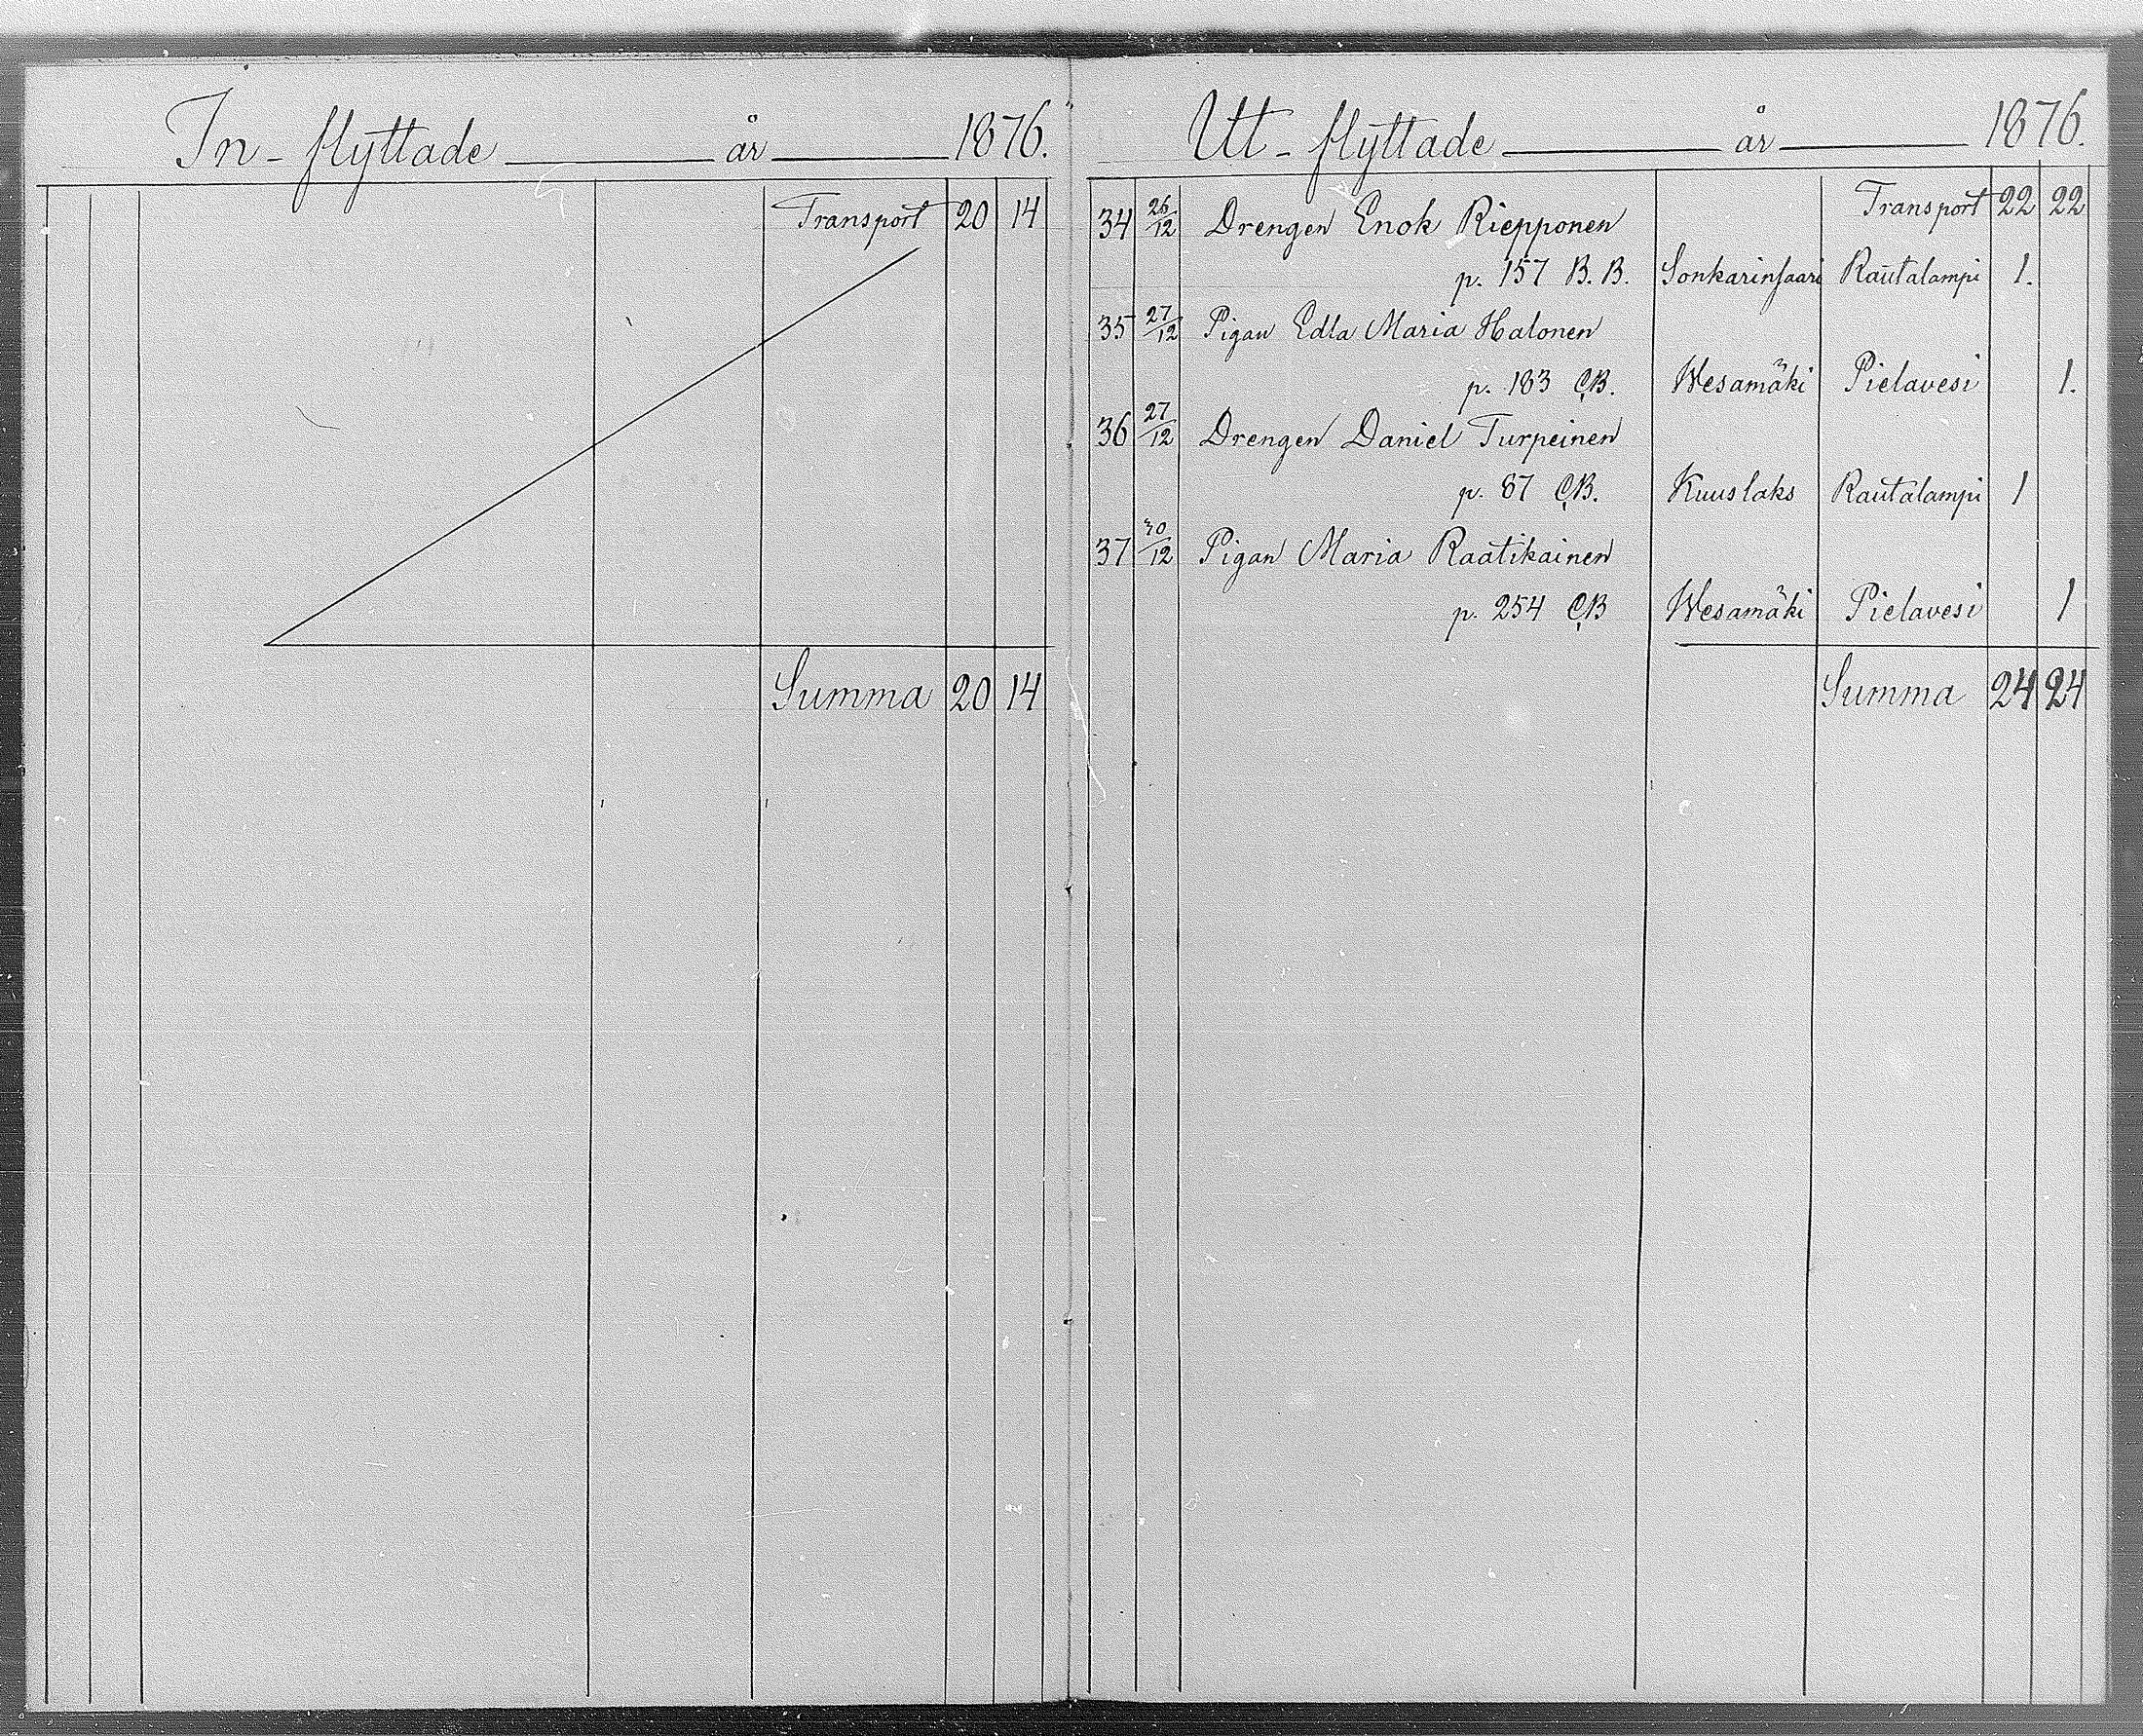 In-flyttade år 1876.
Transport 20 14
Summa 20 14
Ut-flyttade år 1876.
Transport 22 22
34 26/12 Drengen Enok Riepponen
p. 157 B.B. Sonkarinsaari Rautalampi 1.
35 27/12 Pigan Edla Maria Halonen
p. 183 C,B. Wesamäki Pielavesi 1.
36 27/12 Drengen Daniel Turpeinen
p. 87 C,B. Kuuslaks Rautalampi 1
37 30/12 Pigan Maria Raatikainen
p. 254 C,B Wesamäki Pielavesi 1
Summa 24 24